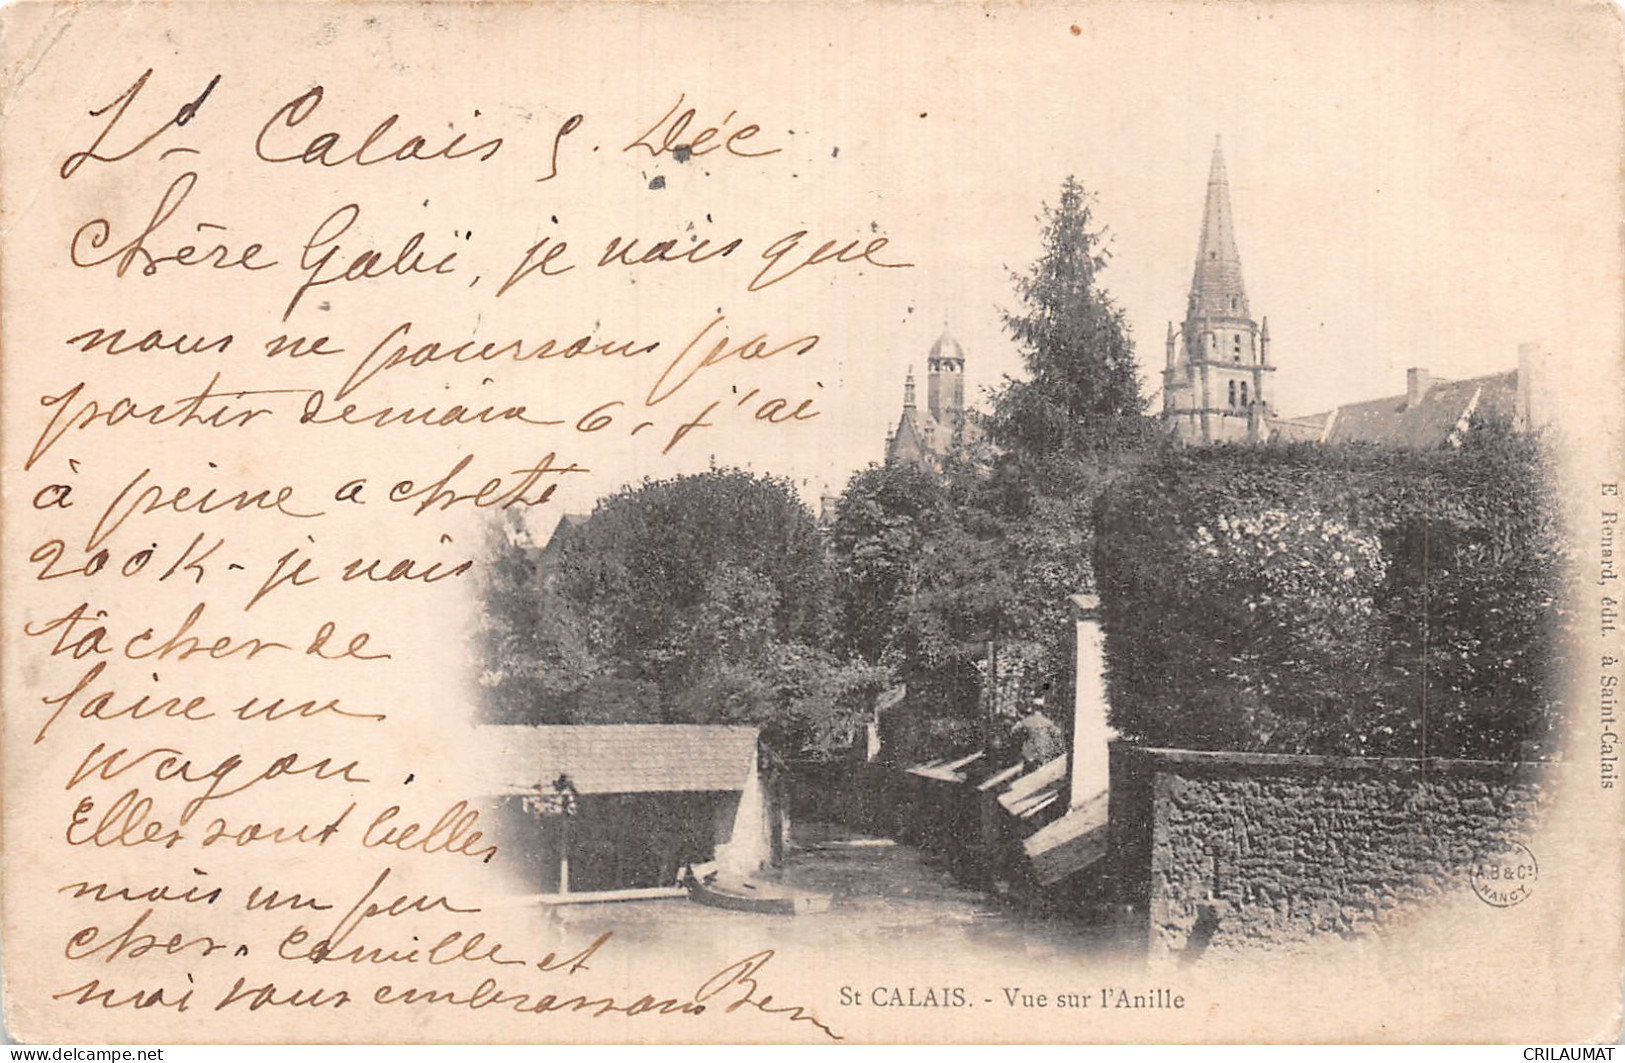 St Calais 5. Déc.
Chère Gabï, je vois que
nous ne pourrons pas
partir demain 6, j'ai
à peine acheté
200 K - je vais
tâcher de
faire un
wagon.
Elles sont belles
mais un peu
cher. Camille et
moi vous embrassons
St CALAIS. - Vue sur l'Anille
E Renard, édit. à Saint-Calais
A.B & Cie
NANCY
CRILAUMAT
delcampe.net